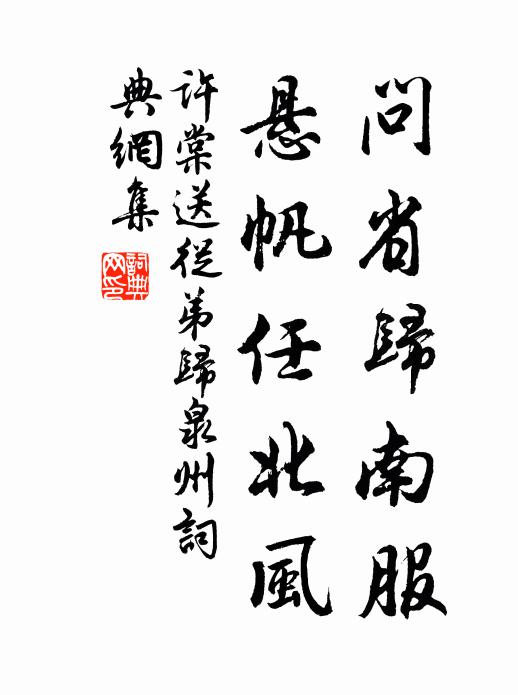 問省歸南服
懸帆任北風
許棠送從弟歸泉州詞
典網集
詞典
网印